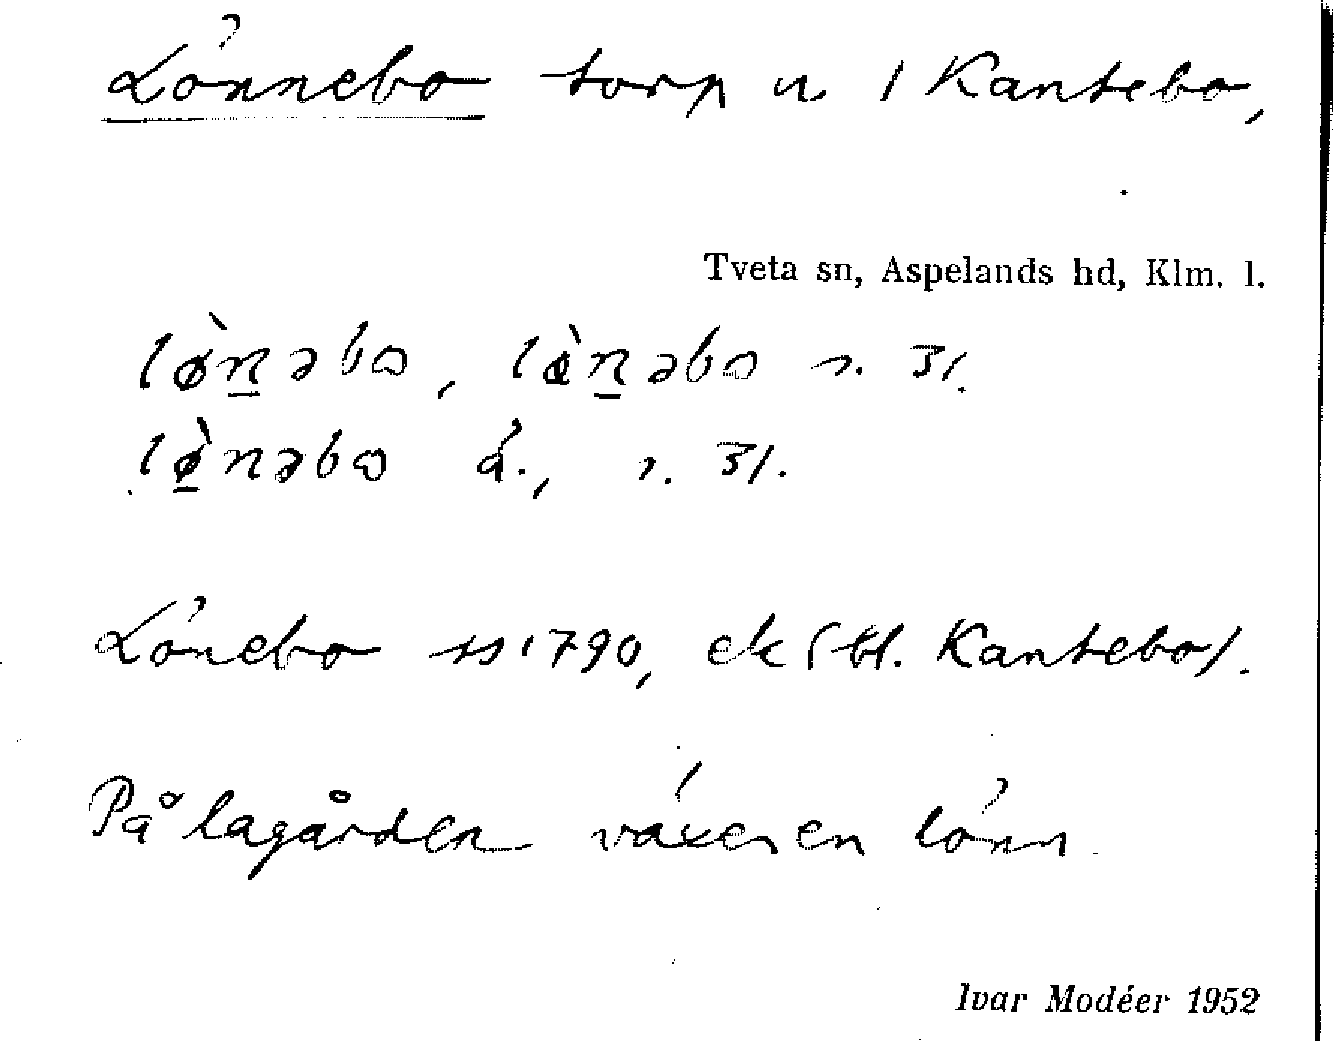 Lönnebo torp u / Kantebo,
Tveta sn, Aspelands hd, Klm. l.
lø̀n̲əbω, lὰn̲əbω s. 3/.
lø̲̀nəbω ä., s. 3/.
Lönebo ss 1790, ek (tbl. Kantebo/.
På lagården växer en lönn.
Ivar Modéer 1952